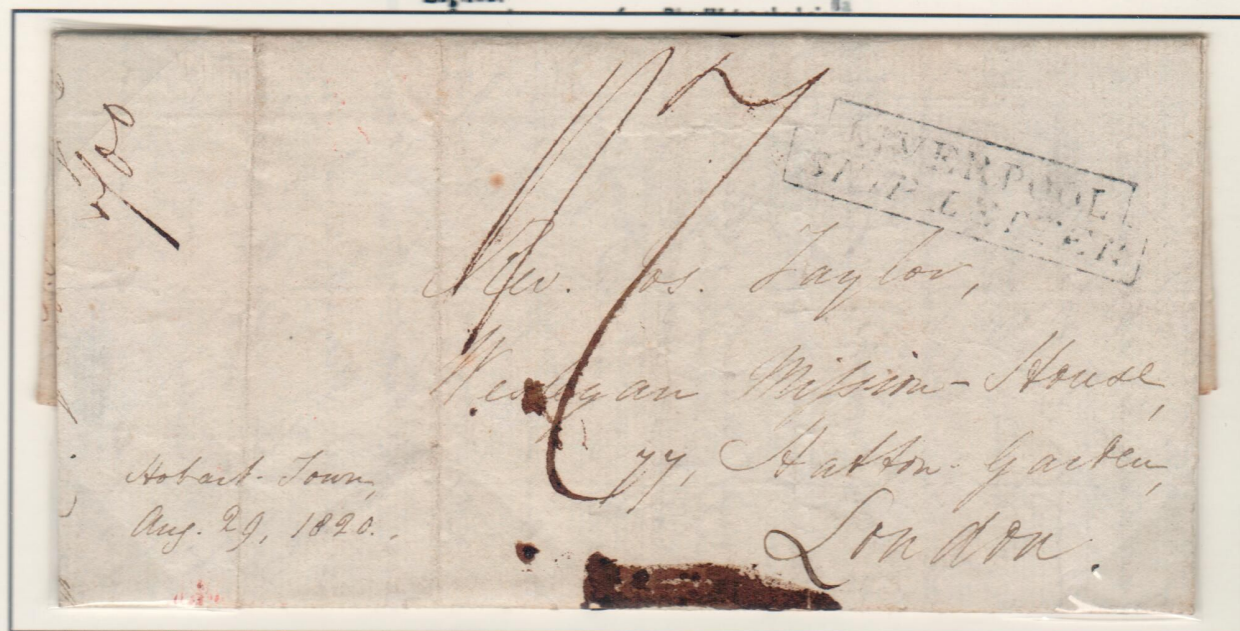 LIVERPOOL
SHIP LETTER
Rev. Jos. Taylor,
Wesleyan Mission-House,
77, Hatton-Garden,
London.
Hobart-Town,
Aug. 29, 1820.